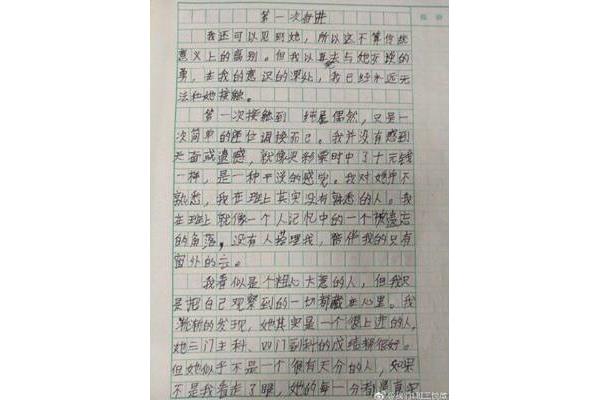 第一次奋进
我还可以见到她，所以这不算传统
意义上的离别。但我以失去与她交谈的
勇，在我的意识的深处，我已经永远无
法和她接触。
第一次接触到 纯属偶然，只是一
次简单的座位调换而已。我并没有感到
天喜或遗憾，就像买彩票时中了十元钱
一样，是一种平淡的感觉。我对她并不
熟悉，我在班上其实没有熟悉的人。我
在班上就像一个人记忆中的一个被遗忘
的角落，没有人搭理我，陪伴我的只有
窗外的云。
我看似是个粗心大意的人，但我只
是把自己观察到的一切都藏在心里。我
渐渐的发现，她其实是一个很上进的人，
她三门主科、四门副科的成绩都很好。
但她似乎不是一个很有天分的人，如果
不是我看走了眼，她的每一分都是真实